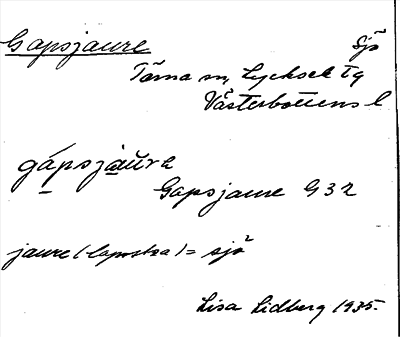 Gapsjaure Sjö
Tärna sn, Lycksele tg
Västerbottens l
gápsjau̯re
Gapsjaure G 32
jaure (lapska) = sjö
Lisa Lidberg 1935.